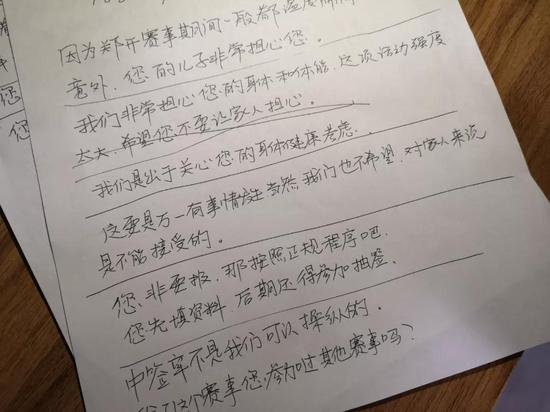 因为郑开赛事期间一般都
意外，您的儿子非常担心您。
我们非常担心您的身体和体能，这项活动强度
太大，希望您不要让家人担心。
我们是出于关心您的身体健康考虑.
这要是万一有事情发生 当然我们也不希望，对家人来说
是不能接受的。
您非要报，那按照正规程序吧.
您先填资料，后期还得参加抽签.
中签率不是我们可以操纵的。
这个赛事您参加过其他赛事吗？
您
您